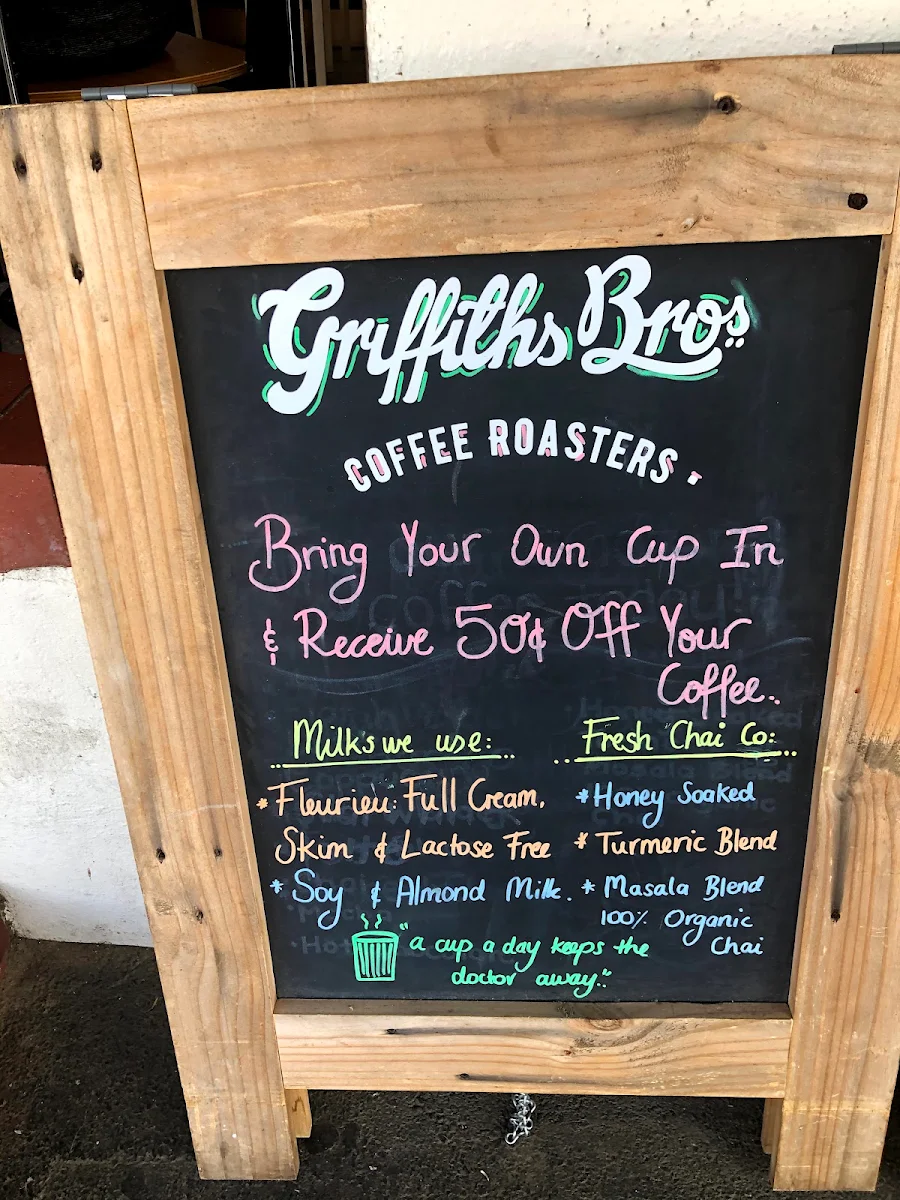 Griffiths Bros
COFFEE ROASTERS.
Bring Your Own Cup In
& Receive 50¢ Off Your
Coffee..
Milk's we use:
* Fleurieu: Full Cream,
Skim & Lactose Free
* Soy & Almond Milk.
Fresh Chai Co:
* Honey Soaked
* Turmeric Blend
* Masala Blend
100% Organic
Chai
"a cup a day keeps the
doctor away."